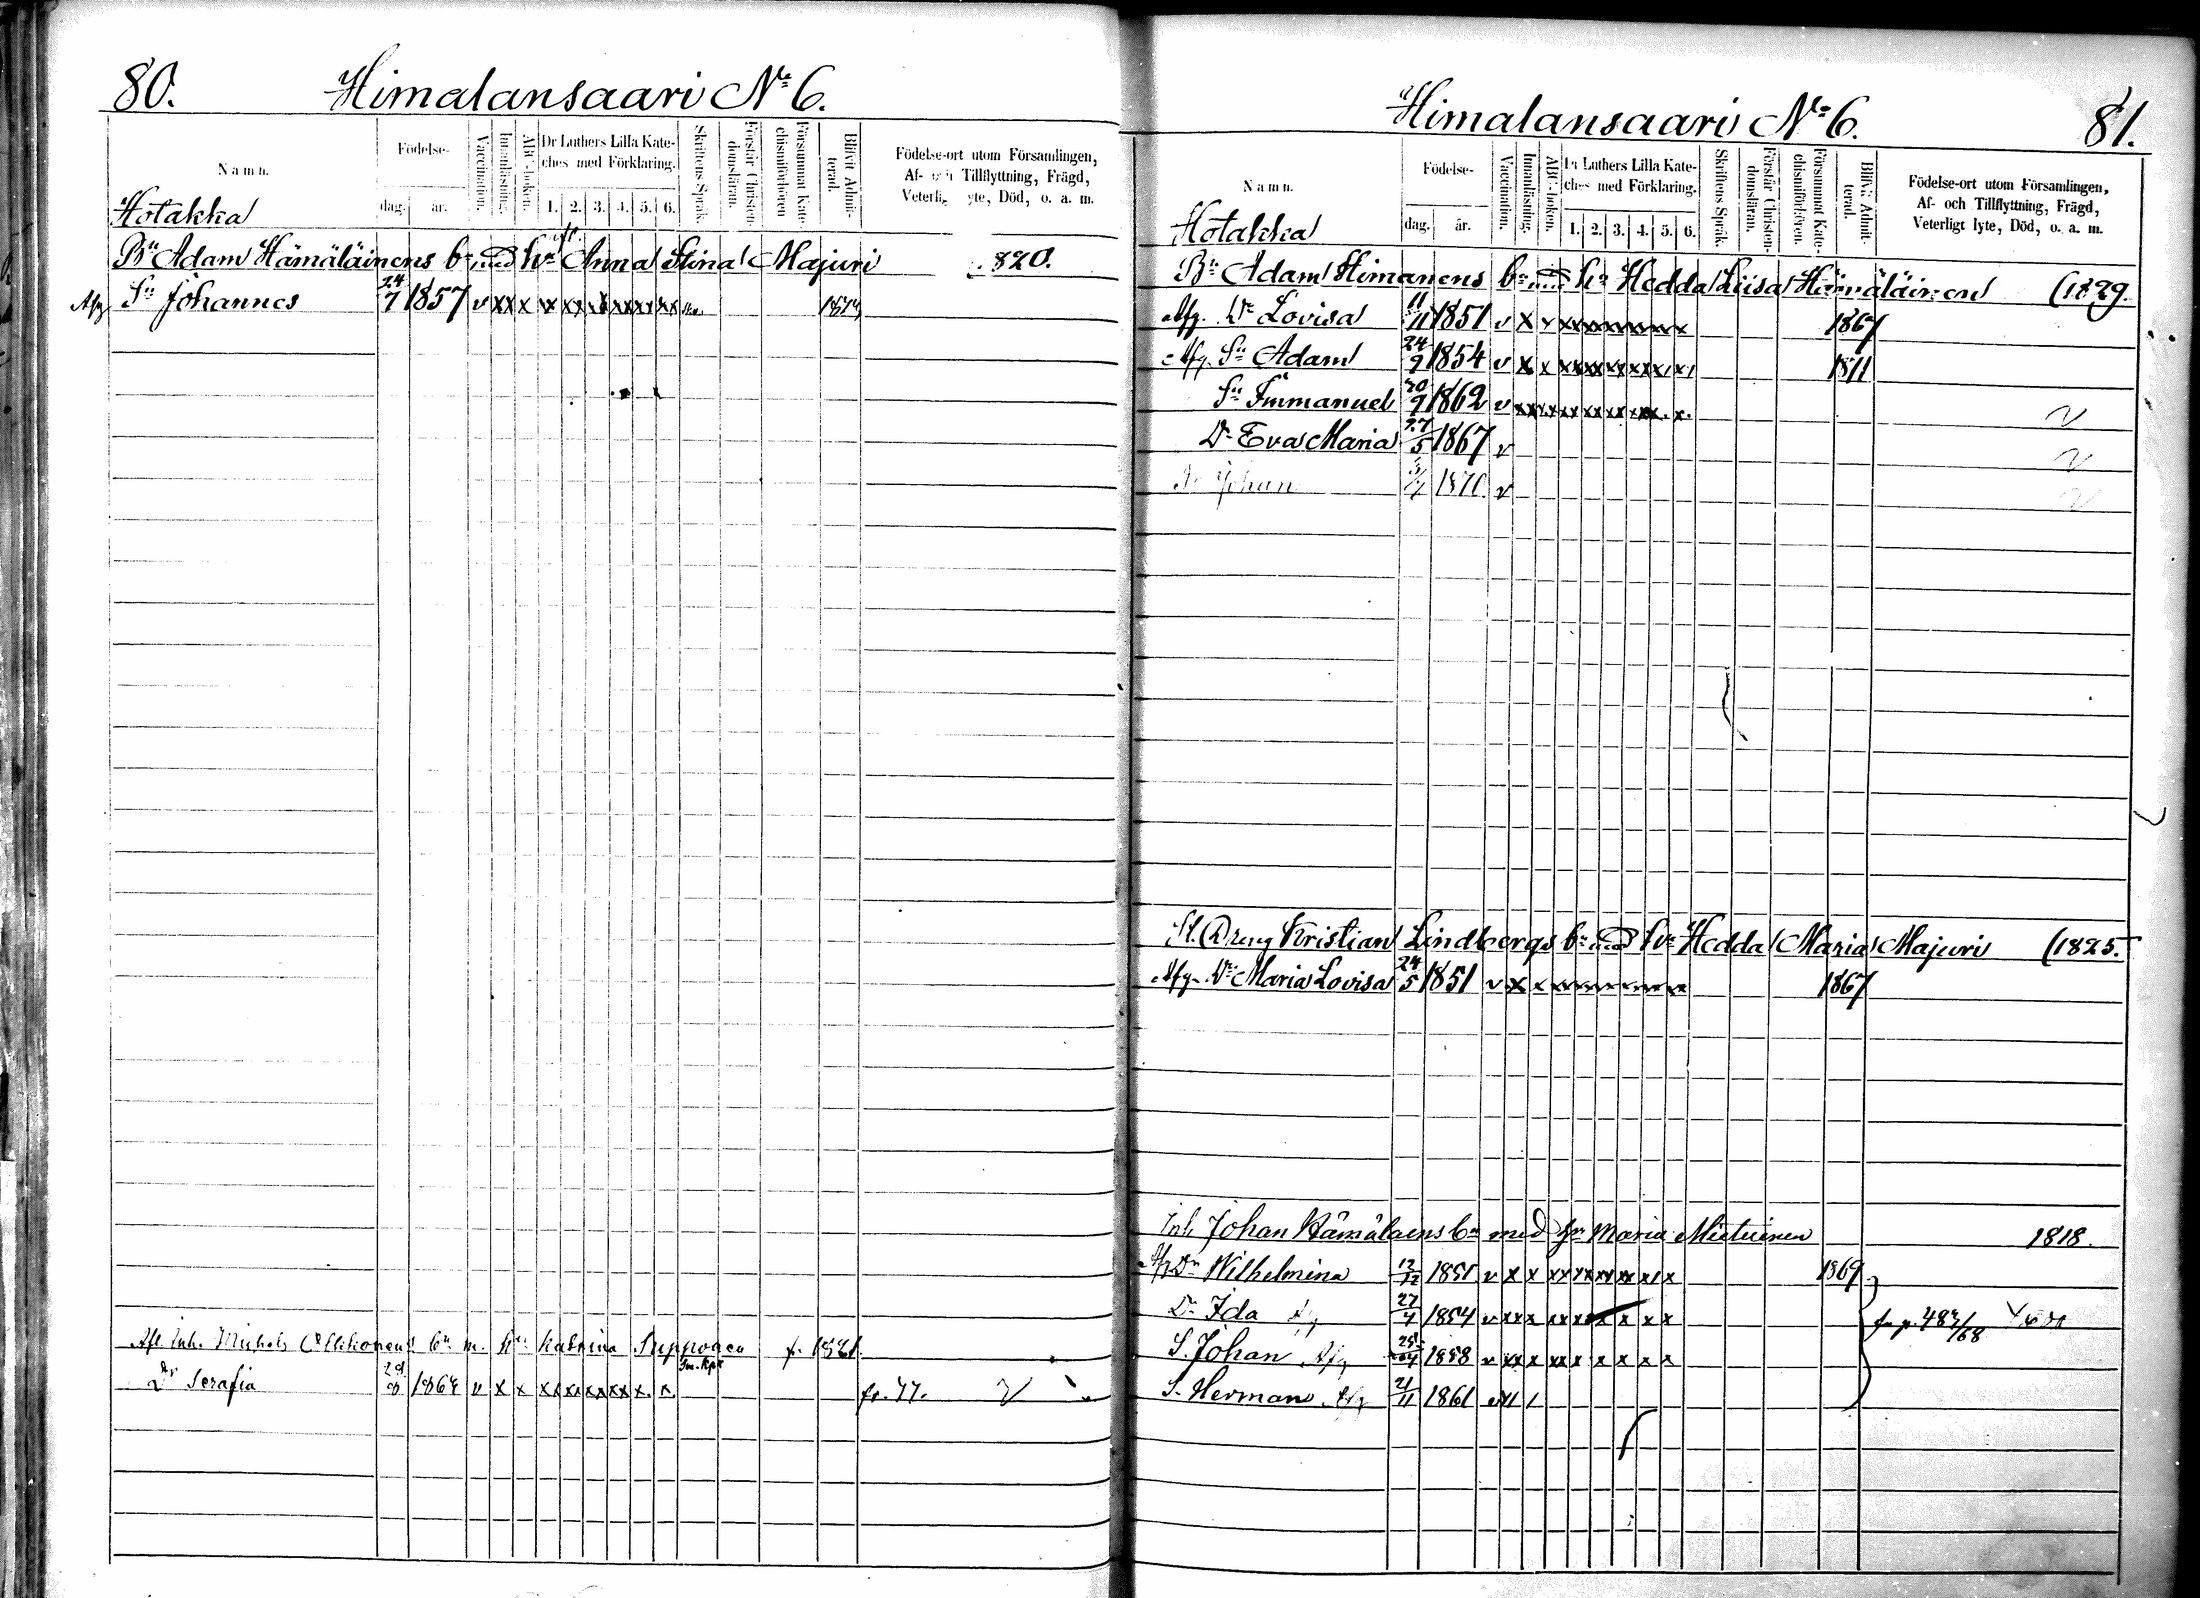 80.
Himalansaari No 6.
Namn.
Födelse-
dag.
år.
Vaccination.
Innanläsning.
ABC-boken.
Dr Luthers Lilla Kate-
ches med Förklaring.
1. 2. 3. 4. 5. 6.
Skriftens Språk.
Förstår Christen-
domsläran.
Försummat Kate-
chismiförhören
Blifvit Admit-
terad.
Födelse-ort utom Församlingen,
Af- och Tillflyttning, Frägd,
Veterlig lyte, Död, o. a. m.
Hotakka
Bn Adam Hämäläinens bn med hu Anna Stina Majuri 1820.
Afg Sn Johannes 24/7 1857 v xx x x xx x xx xx xx
Afl. Inh. Michels bn m. hu Katrina f. 1821
Dr Serafia 1864 v x x xx xx xx xx x x fr. 77.
Himalansaari No 6.
81.
Namn.
Födelse-
dag.
år.
Vaccination.
Innanläsning.
ABC-boken.
Dr Luthers Lilla Kate-
ches med Förklaring.
1. 2. 3. 4. 5. 6.
Skriftens Språk.
Förstår Christen-
domsläran.
Försummat Kate-
chismiförhören.
Blifvit Admit-
terad.
Födelse-ort utom Församlingen,
Af- och Tillflyttning, Frägd,
Veterligt lyte, Död, o. a. m.
Hotakka
Bn Adam Himanens bn med hu Hedda Liisa Hämäläinen (1829.
Afg. Dr Lovisa 11/11 1851 v x x 1867
Afg. Sn Adam 24/9 1854 v x x 1871
Sn Emmanuel 20/9 1862 v
Dr Eva Maria 27/5 1867 v
Sn Johan 1870 v
Sl. Dreng Kristian Lindbergs bn med hu Hedda Maria Majuri (1825.
Afg. Dr Maria Lovisa 24/5 1851 v x x 1867
Inh Johan Hämäläins bn med hu Maria Miettinen 1818.
Afg Dr Wilhelmina 12/12 1851 v x x xx xx xx xx x x 1869
Dr Ida Afg 27/4 1854 v xx x
S. Johan Afg 1858 v xx x xx x x x x x
S. Herman Afg 21/11 1861